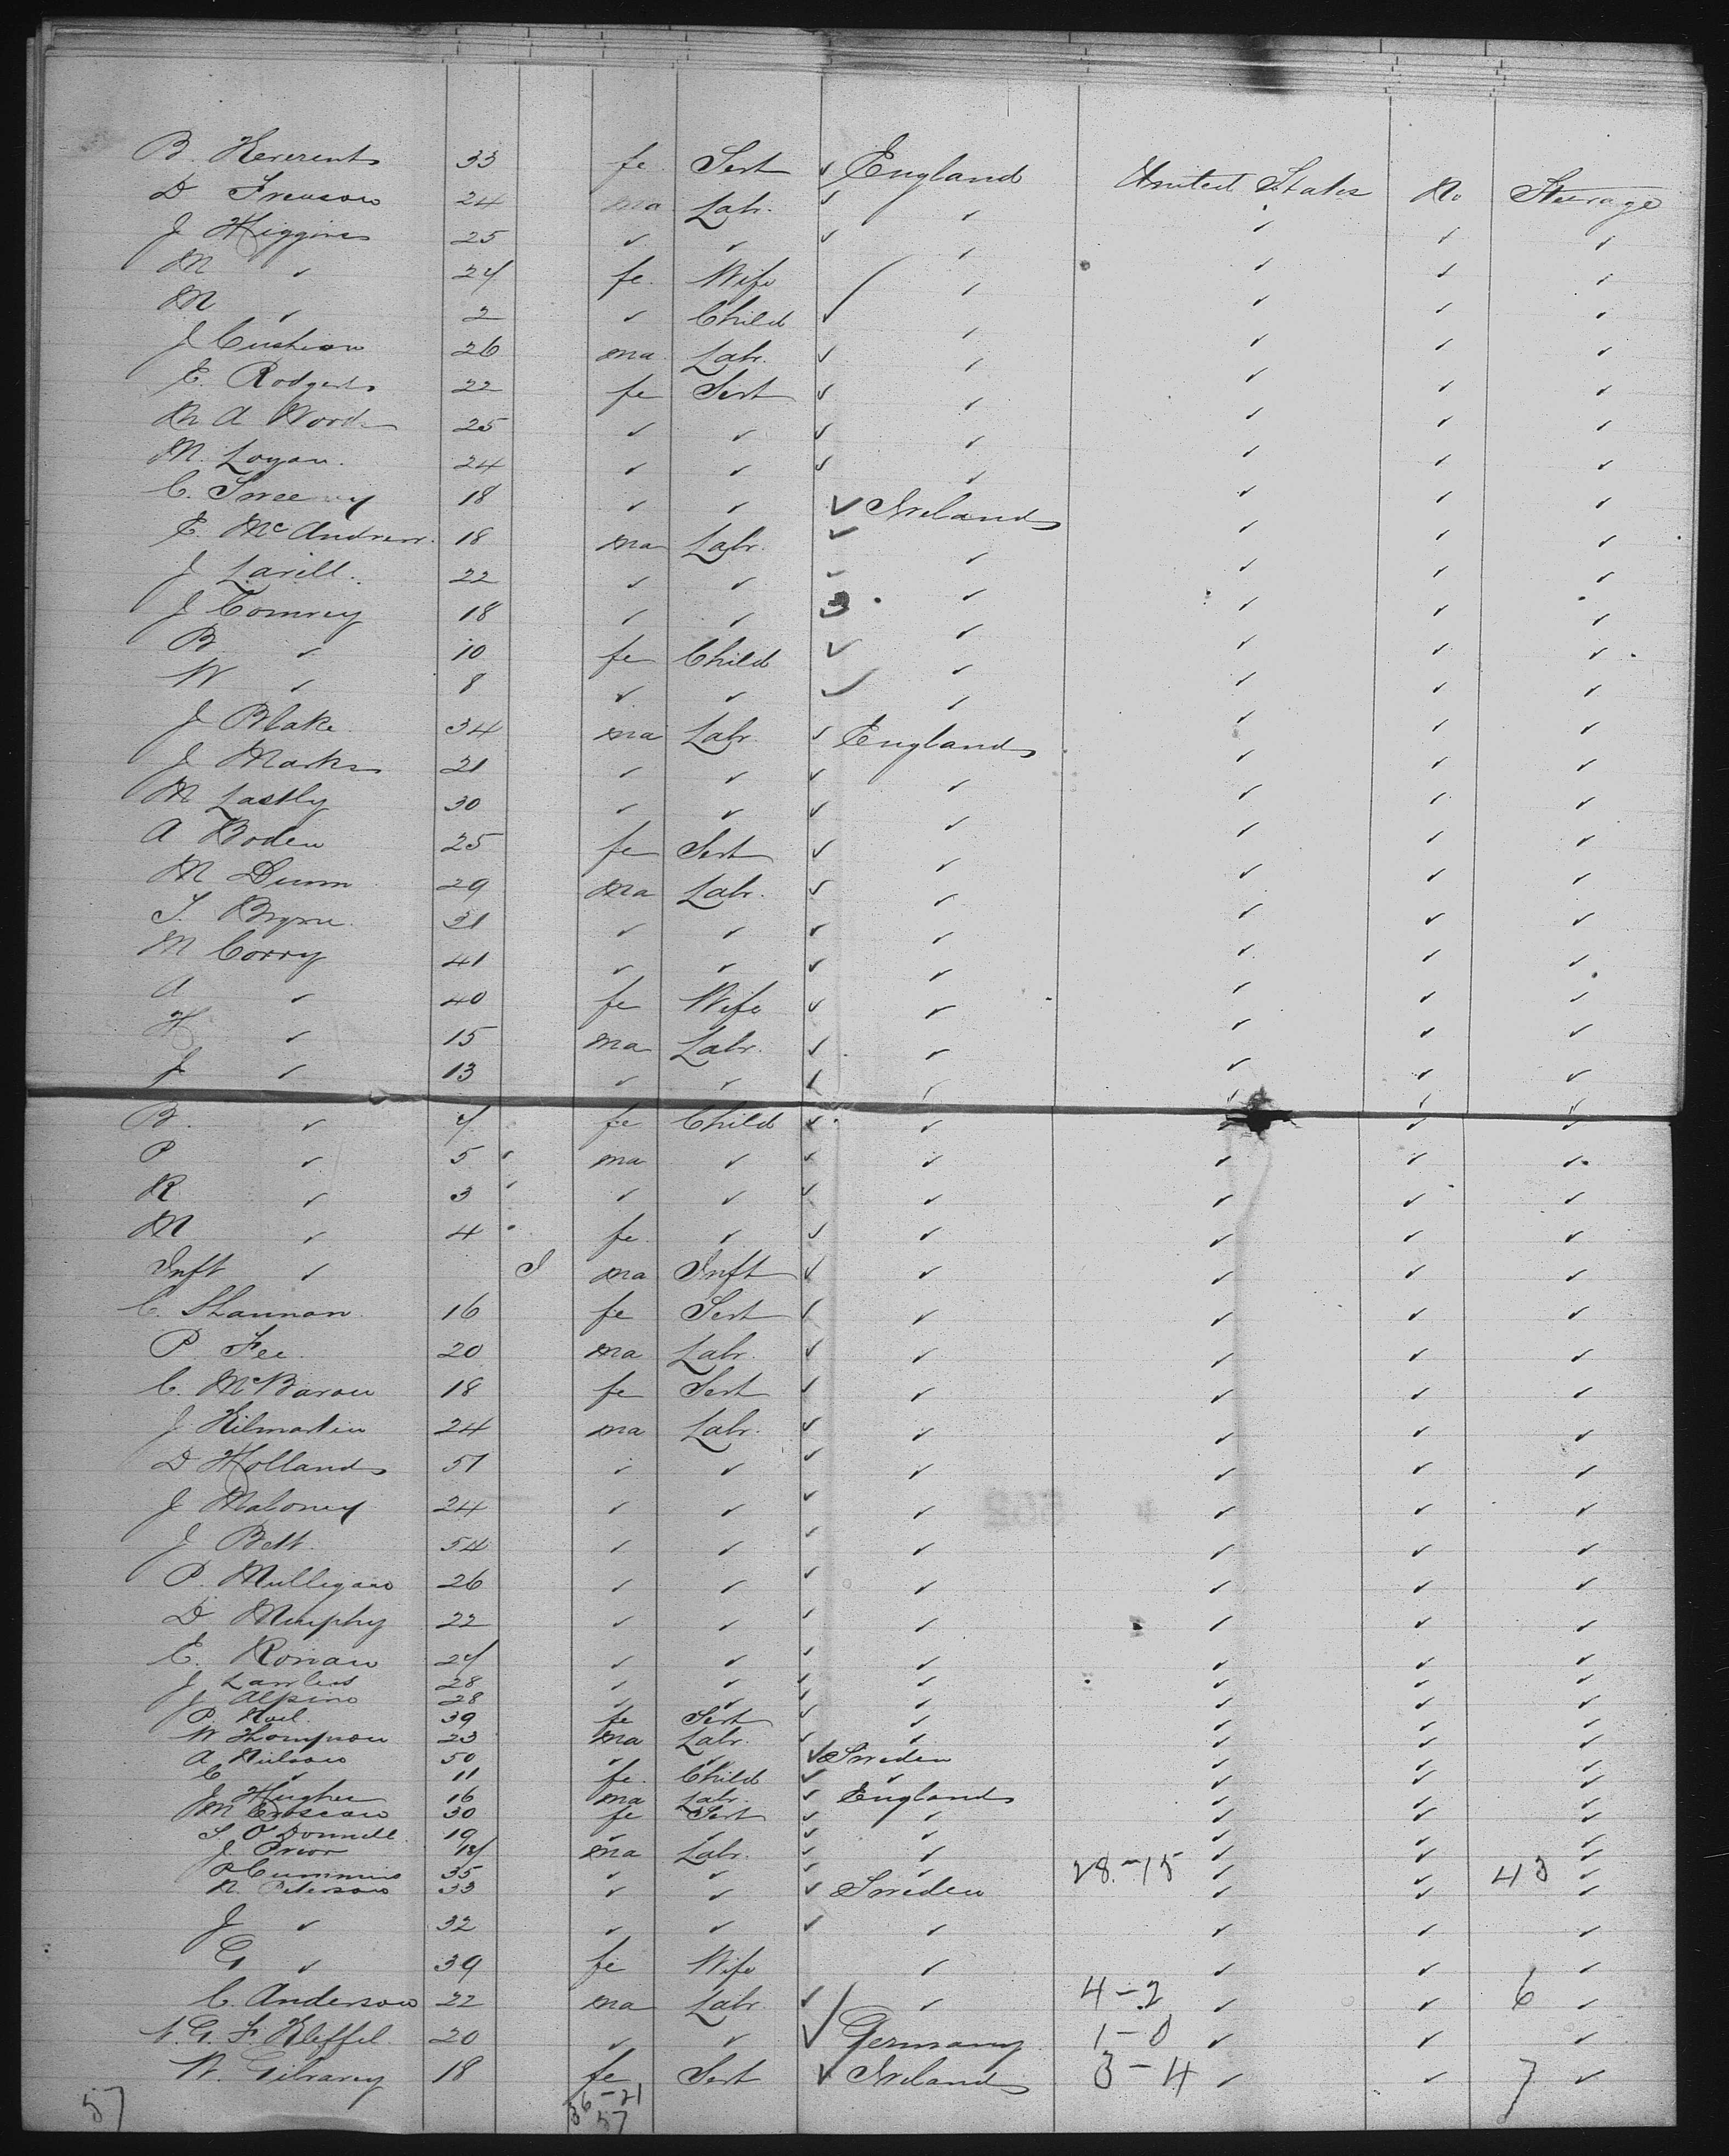 B. 33 fe Sert ✓ England United States No Steerage
D 24 ma Labr. ✓ ✓ ✓ ✓ ✓
J Higgins 25 ✓ ✓ ✓ ✓ ✓ ✓ ✓
M ✓ 24 fe. Wife ✓ ✓ ✓ ✓
M ✓ 2 ✓ Child ✓ ✓ ✓ ✓ ✓
J 26 ma Labr. ✓ ✓ ✓ ✓ ✓
E. Rodgers 22 fe Sert ✓ ✓ ✓ ✓ ✓
M A Ward 25 ✓ ✓ ✓ ✓ ✓ ✓ ✓
M. Logan. 24 ✓ ✓ ✓ ✓ ✓ ✓ ✓
C. Sweeney 18 ✓ ✓ ✓ Ireland ✓ ✓ ✓
E. McAndrew. 18 ma Labr. ✓ ✓ ✓ ✓ ✓
J Lavill. 22 ✓ ✓ ✓ ✓ ✓ ✓
J Comrey 18 ✓ ✓ ✓ ✓ ✓ ✓
B ✓ 10 fe Child ✓ ✓ ✓ ✓ ✓
W ✓ 8 ✓ ✓ ✓ ✓ ✓ ✓ ✓
J Blake. 34 ma Labr. ✓ England ✓ ✓ ✓
J Marks 21 ✓ ✓ ✓ ✓ ✓ ✓ ✓
M Lastly 30 ✓ ✓ ✓ ✓ ✓ ✓ ✓
A Boden 25 fe Sert ✓ ✓ ✓ ✓ ✓
M Dunn 29 ma Labr. ✓ ✓ ✓ ✓ ✓
S. Bryne. 31 ✓ ✓ ✓ ✓ ✓ ✓ ✓
M Corry 41 ✓ ✓ ✓ ✓ ✓ ✓ ✓
A ✓ 40 fe Wife ✓ ✓ ✓ ✓ ✓
H ✓ 15 ma Labr. ✓ ✓ ✓ ✓ ✓
J ✓ 13 ✓ ✓ ✓ ✓ ✓ ✓ ✓
B. ✓ 7 fe Child ✓ ✓ ✓ ✓ ✓
P ✓ 5 ma ✓ ✓ ✓ ✓ ✓ ✓
R ✓ 3 ✓ ✓ ✓ ✓ ✓ ✓ ✓
M ✓ 4 fe. ✓ ✓ ✓ ✓ ✓ ✓
Inft ✓ ma Inft ✓ ✓ ✓ ✓ ✓
C. Shannon. 16 fe Sert ✓ ✓ ✓ ✓ ✓
P. Fee. 20 ma Labr. ✓ ✓ ✓ ✓ ✓
C. McBaron 18 fe Sert ✓ ✓ ✓ ✓ ✓
J. Kilmartin 24 ma Labr. ✓ ✓ ✓ ✓ ✓
D Holland 51 ✓ ✓ ✓ ✓ ✓ ✓ ✓
J Maloney 24 ✓ ✓ ✓ ✓ ✓ ✓ ✓
J Bett. 54 ✓ ✓ ✓ ✓ ✓ ✓ ✓
P. Mulligan 26 ✓ ✓ ✓ ✓ ✓ ✓ ✓
D. Murphy 22 ✓ ✓ ✓ ✓ ✓ ✓ ✓
E. Ronan 24 ✓ ✓ ✓ ✓ ✓ ✓ ✓
J Lawless 28 ✓ ✓ ✓ ✓ ✓ ✓ ✓
J Alpine 28 ✓ ✓ ✓ ✓ ✓ ✓ ✓
P. 39 fe Sert ✓ ✓ ✓ ✓ ✓
W Thompson 23 ma Labr. ✓ ✓ ✓ ✓ ✓
A Nielson 50 ✓ ✓ ✓ Sweden ✓ ✓ ✓
C ✓ 11 fe. Child ✓ ✓ ✓ ✓ ✓
J Hughes 16 ma Labr. ✓ England ✓ ✓ ✓
M 30 fe Sert ✓ ✓ ✓ ✓ ✓
S. O'Donnell. 19 ✓ ✓ ✓ ✓ ✓ ✓ ✓
J. Prior ma Labr. ✓ ✓ ✓ ✓ ✓
P Cummins 35 ✓ ✓ ✓ ✓ 28-15 ✓ ✓ 43 ✓
N. Peterson 33 ✓ ✓ ✓ Sweden ✓ ✓ ✓
J ✓ 32 ✓ ✓ ✓ ✓ ✓ ✓ ✓
G ✓ 39 fe Wife ✓ ✓ ✓ ✓
C. Anderson 22 ma Labr ✓ ✓ 4-2 ✓ ✓ 6 ✓
G. F. Kleffel. 20 ✓ ✓ ✓ Germany 1-0 ✓ ✓ ✓
W. Gilraney 18 fe Sert ✓ Ireland 3-4 ✓ ✓ 7 ✓
57 36-21
57